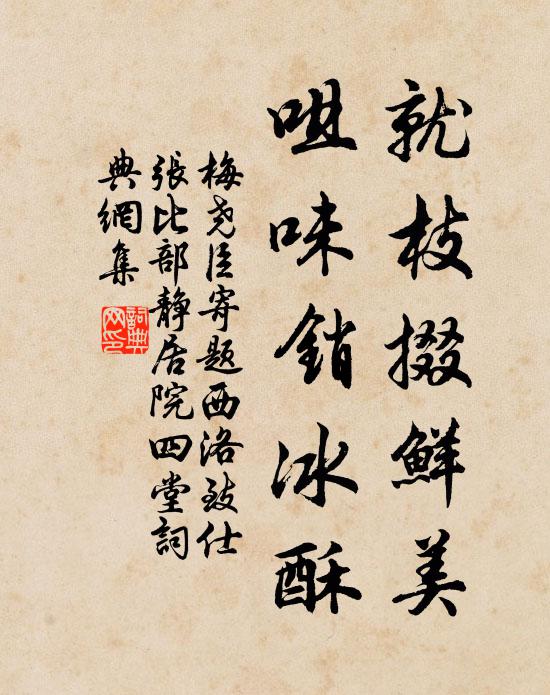 就枝掇鮮美
咀味銷冰酥
梅尧臣寄题西洛致仕
張比部静居院四堂詞
典網集
詞典
网印